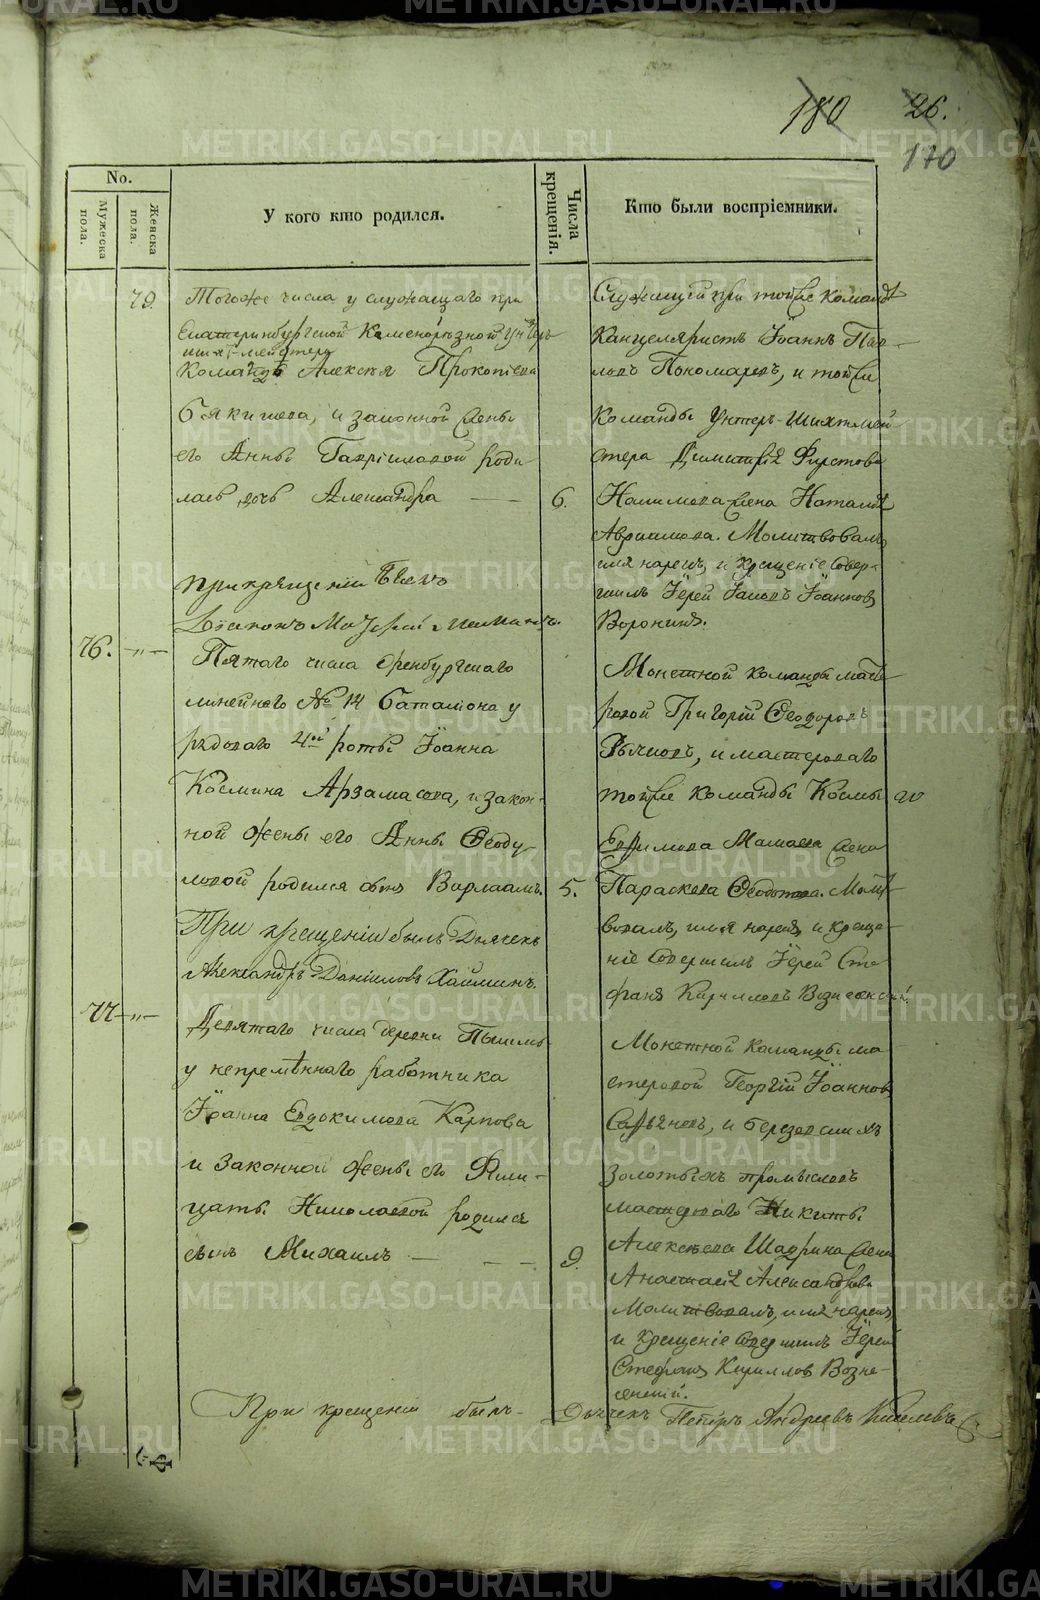 180 26.
170
No.
Мужеска пола.
Женска пола.
У кого кто родился.
Числа крещенія.
Кто были воспріемники.
79. Тогоже числа у служащаго при
Екатеринбургской Каменорѣзной Унтеръ
шихтмейстера
Командѣ Алексѣя Прокопіева
Бякишева, и законной жены
его Анны Гавріиловой роди
лась дочь Александра 6.
При крещеніи былъ
Діаконъ
Служащій при тойже командѣ
Канцеляристъ Іоаннъ Пав-
ловъ Пономаревъ, и тойже
команды Унтеръ-Шихтмей-
стера Димитрія Фирстова
жена Наталія
Авраамова. Молитвовалъ,
имя нарекъ, и крещеніе совер-
шилъ Іерей Іаковъ Іоанновъ
Воронинъ.
76. -"- Пятаго числа Оренбургскаго
линейнаго № 14 баталіона у
рядоваго 4ой роты Іоанна
Космина Арзамасова, и закон-
ной жены его Анны Ѳеоду-
ловой родился сынъ Варлаамъ. 5.
При крещеніи былъ Дьячекъ
Александръ Даніиловъ Хаминъ.
Монетной команды масте-
ровой Григорій Ѳеодоровъ
Рычковъ, и мастероваго
тойже команды Космы
Евфимова Мамаева жена
Параскева Ѳеодотова. Молит-
вовалъ, имя нарекъ, и креще-
ніе совершилъ Іерей Сте-
фанъ Кирилловъ Вознесенскій.
77 -"- Девятаго числа деревни Пышмы
у непремѣннаго работника
Іоанна Евдокимова Карпова
и законной жены его Фили-
цаты Николаевой родился
сынъ Михаилъ 9.
Монетной команды ма-
стеровой Георгій Іоанновъ
и березовскихъ
золотыхъ промысловъ
мастероваго Никиты
Алексѣева Шадрина жена
Анастасія Александрова
Молитвовалъ, имя нарекъ,
и крещеніе совершилъ Іерей
Стефанъ Кирилловъ Возне-
сенскій.
При крещеніи былъ Дьячекъ Петръ Андреевъ Киселевъ
METRIKI.GASO-URAL.RU